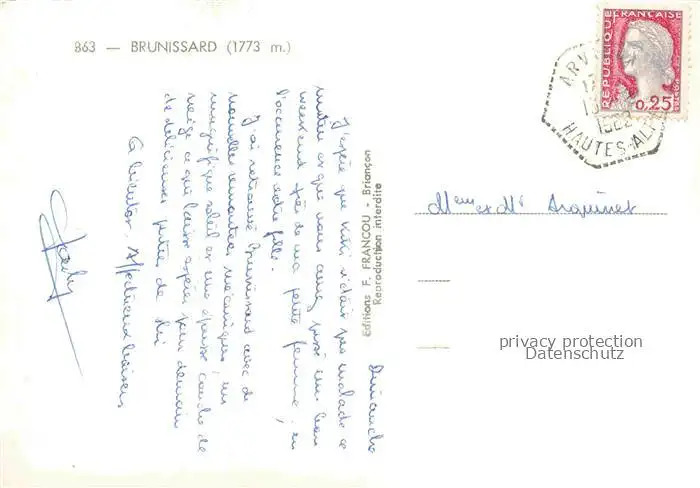 863 — BRUNISSARD (1773 m.)
Dimanche
J'espère que Kiki n'était pas malade ce
matin et que vous avez passé un bon
week end près de ma petite femme, en
l'occurence votre fille.
J'ai retrouvé Brunissard avec de
nouvelles remontées mécaniques, un
magnifique soleil et une épaisse couche de
neige ce qui laisse espérer pour demain
de délicieuses pistes de ski
A bientôt. Affectueux baisers
Editions F. FRANCOU - Briançon
Reproduction interdite
REPUBLIQUE FRANÇAISE
POSTES
0,25
ARV
HAUTES-ALPES
Mme et Mr
privacy protection
Datenschutz